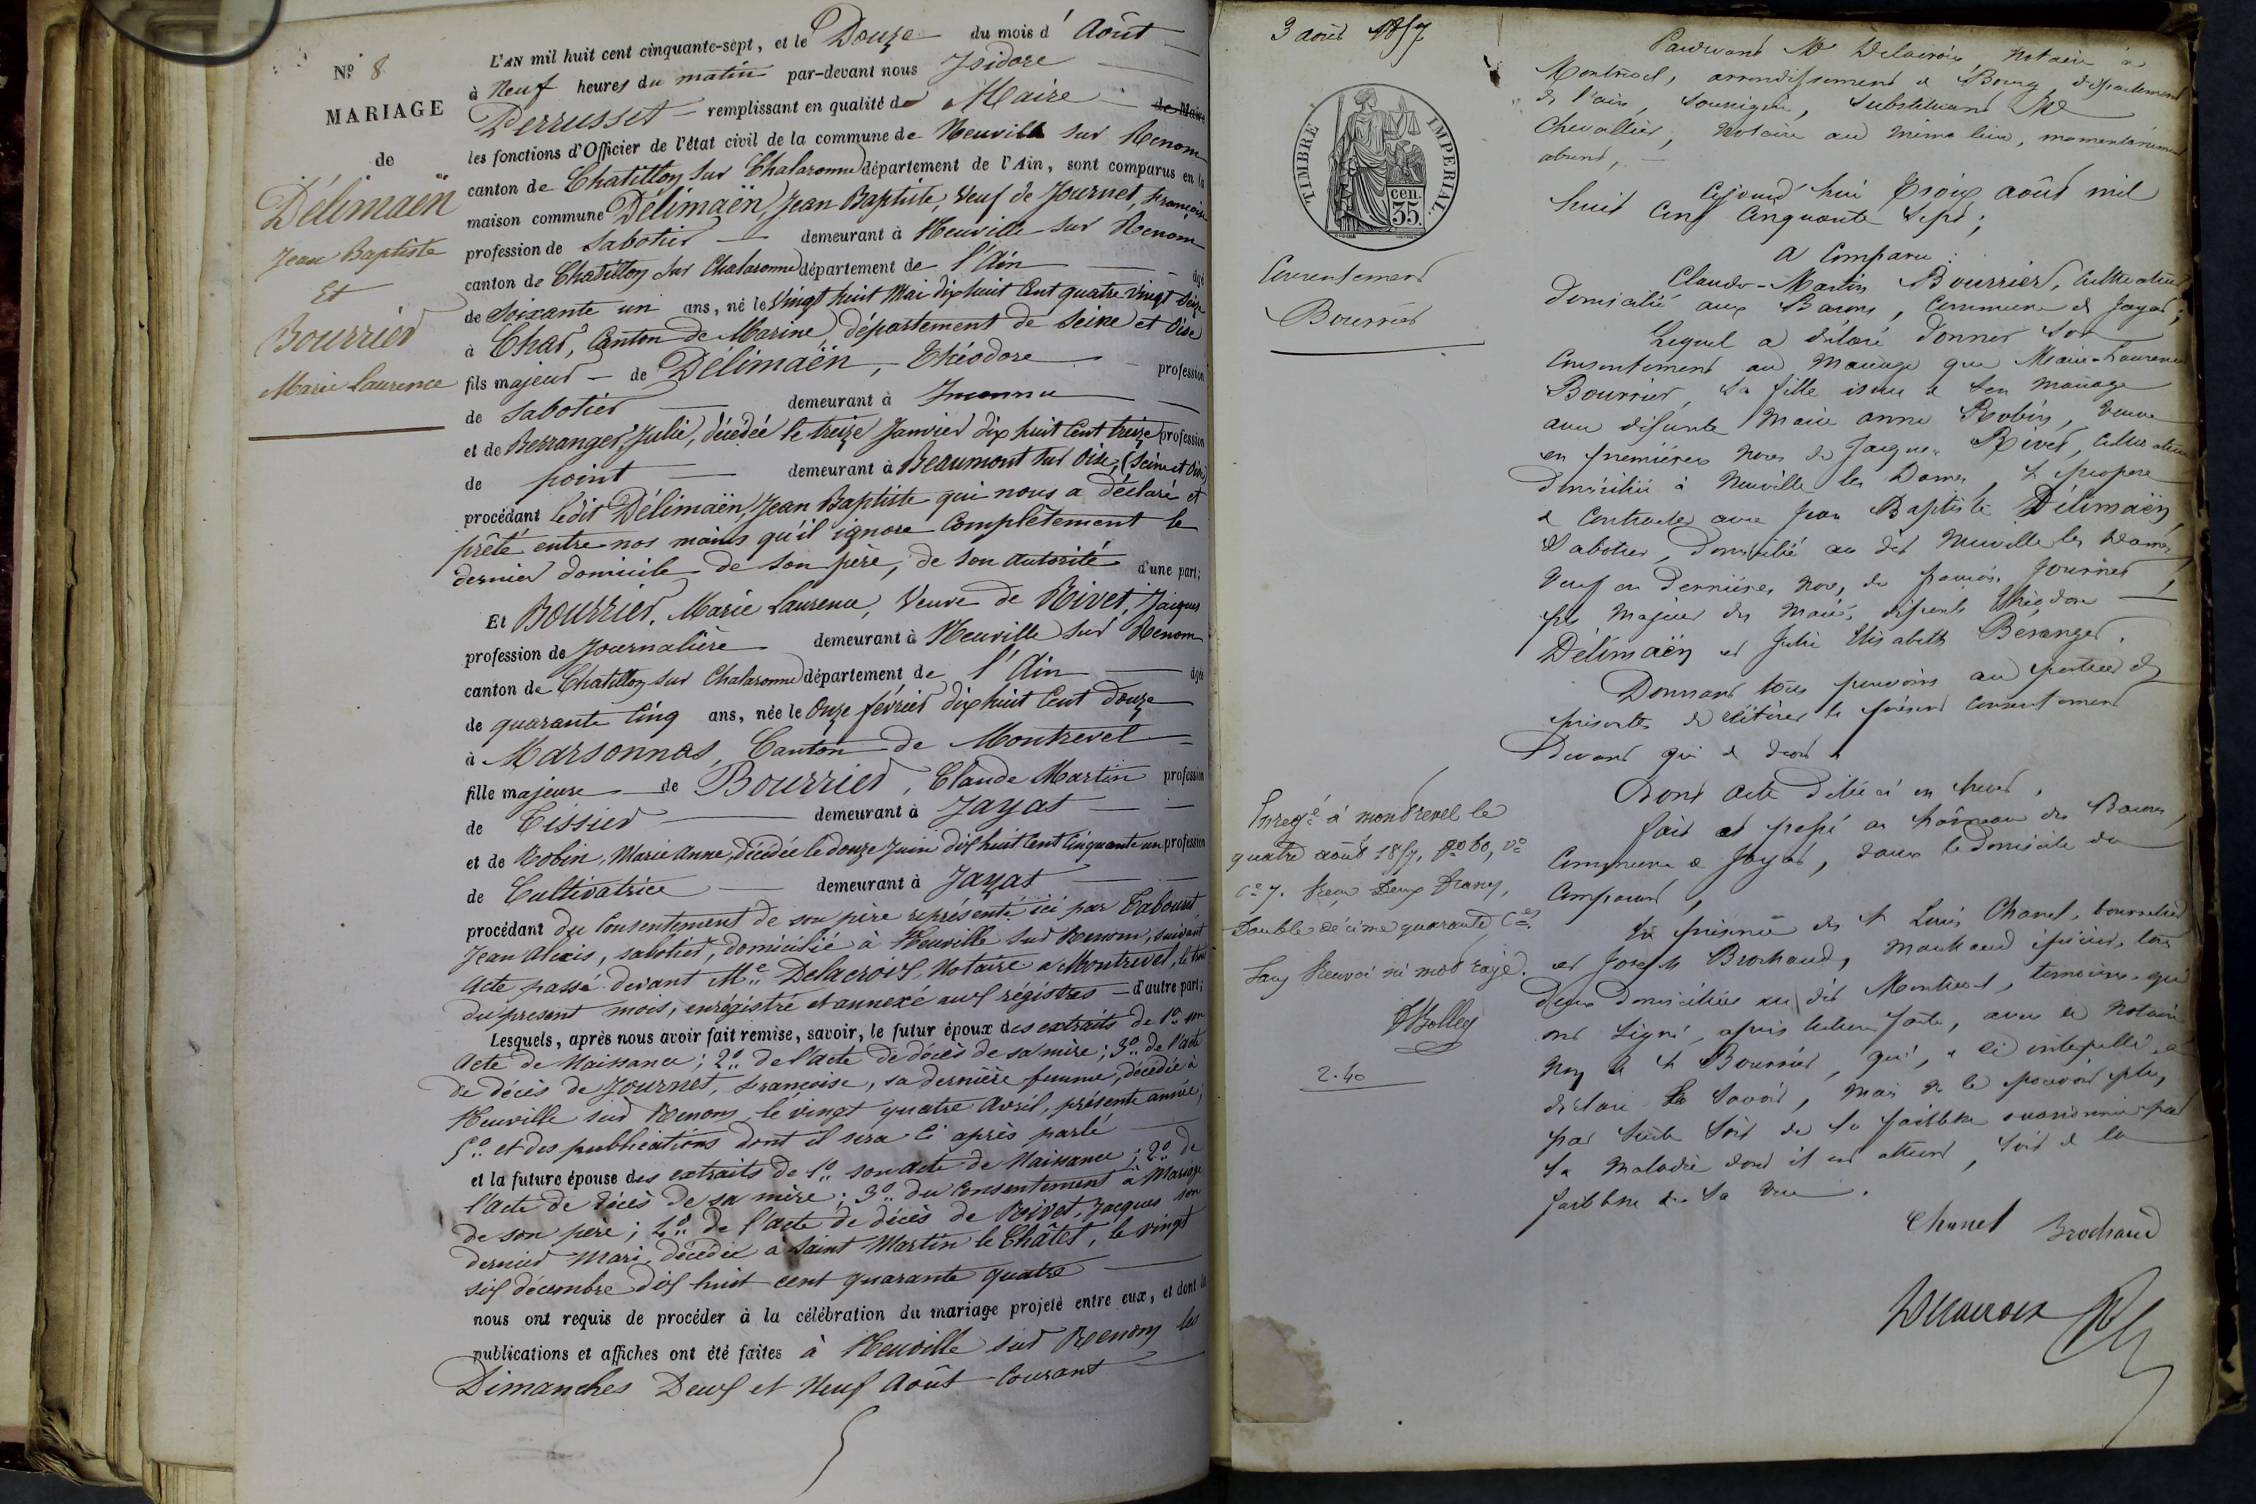 Nº 8
MARIAGE
de
Délimaën
Jean Baptiste
Et
Bourrier
Marie Laurence
L'AN mil huit cent cinquante-sept, et le Douze du mois d'Août
à Neuf heures du matin par-devant nous Isidore
Perrusset remplissant en qualité de Maire
les fonctions d'Officier de l'état civil de la commune de Neuville sur Renom
canton de Chatillon sur Chalaronne département de l'Ain, sont comparus en la
maison commune Délimaën, Jean Baptiste, Veuf de Journet, Françoise
profession de Sabotier demeurant à Neuville sur Renom
canton de Chatillon sur Chalaronne département de l'Ain âgé
de Soixante un ans, né le Vingt huit Mai dix huit Cent quatre Vingt Seize
à Char, Canton de Marine, département de Seine et Oise
fils majeur de Délimaën, Théodore profession
de Sabotier demeurant à Inconnu
et de Berranger, Julie, décédée le treize Janvier dix huit Cent treize profession
de point demeurant à Beaumont sur Oise, (Seine et Oise)
procédant ledit Délimaën, Jean Baptiste qui nous a déclaré et
prêté entre nos mains qu'il ignore Complêtement le
dernier domicile de son père, de son autorité d'une part;
Et Bourrier, Marie Laurence, Veuve de Rivet, Jacques
profession de Journalière demeurant à Neuville sur Renom
canton de Chatillon sur Chalaronne département de l'Ain âgée
de quarante Cinq ans, née le Onze février dix huit Cent douze
à Marsonnas, Canton de Montrevel
fille majeure de Bourrier, Claude Martin profession
de Tissier demeurant à Jayat
et de Robin, Marie Anne, décédée le douze Juin dix huit Cent Cinquante un profession
de Cultivatrice demeurant à Jayat
procédant du Consentement de son père représenté ici par Tabouret
Jean Alexis, sabotier, domicilié à Neuville sur Renom, suivant
acte passé devant Me Delacroix, Notaire à Montrevel, le trois
du present mois, enrégistré et annexé aux régistres d'autre part;
Lesquels, après nous avoir fait remise, savoir, le futur époux des extraits de 1º son
acte de Naissance; 2º de l'acte de décès de sa mère; 3º de l'acte
de décès de Journet, Françoise, sa dernière femme, décédée à
Neuville sur Renom, le vingt quatre Avril, présente année;
5º et des publications dont il sera ci après parlé
et la future épouse des extraits de 1º son acte de Naissance; 2º de
l'acte de décès de sa mère; 3º du Consentement à Mariage
de son père; 4º de l'acte de décès de Rivet, Jacques son
dernier Mari, décédé à Saint Martin le Châtel, le vingt
six décembre dix huit cent quarante quatre
nous ont requis de procéder à la célébration du mariage projeté entre eux, et dont les
publications et affiches ont été faites à Neuville sur Renom les
Dimanches Deux et Neuf Août Courant
3 août 1857
TIMBRE IMPERIAL
cen.
35.
Consentement
Bourrier
Pardevant Me Delacroix, Notaire à
Montrevel, arrondissement de Bourg département
de l'ain, soussigné, Substituant Me
Chevallier, Notaire au même lieu, momentanément
absent,
Cejourd'hui Trois août mil
huit Cent Cinquante Sept;
A Comparu:
Claude-Martin Bourrier, Cultivateur
domicilié aux Barons, Commune de Jayat;
Lequel a déclaré donner son
Consentement au Mariage que Marie-Laurence
Bourrier, Sa fille issue de son Mariage
avec défunte Marie Anne Robin, Veuve
en premières Noces de Jacques Rivet, Cultivatrice
domiciliée à Neuville les Dames, se propose
de Contracter avec Jean Baptiste Délimaën,
Sabotier, domicilié au dit Neuville les Dames,
Veuf en dernières Noces de Françoise Journet,
fils Majeur des Mariés défunts Théodore
Délimaën et Julie Elisabeth Béranger.
Donnant tous pouvoirs au porteur des
présentes de réitérer le présent Consentement
Devant qui de droit.
Dont acte délivré en brevet.
Fait et passé au hâmeau des Barons,
Commune de Jayat, dans le domicile du
Comparant,
En présence de M Louis Chanel, bourrelier
et Joseph Brochand, Marchand épicier, tous
deux domiciliés au dit Montrevel, témoins qui
ont Signé, après lecture faite, avec le Notaire
Non le M Bourrier, qui, de ce interpellé, a
déclaré le Savoir, Mais ne le pouvoir plus,
par suite Soit de la faiblesse occasionnée par
la Maladie dont il est atteint, Soit de la
faiblesse de Sa Vue.
Chanel Brochand
Delacroix
Enregé à montrevel le
quatre août 1857, fo 60, vo
Ce 7. Reçu Deux francs,
Double décime quarante Ces
Sans Renvoi ni mot rayé.
2.40